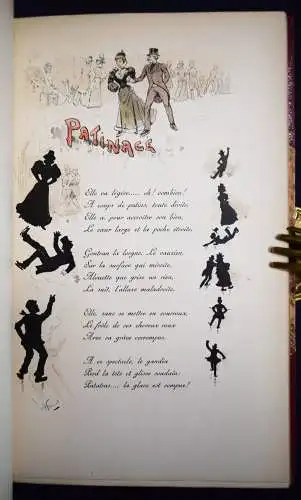 PATINAGE
Elle va légère.... oh! combien!
A coups de patins, toute droite,
Elle a, pour accroître son bien,
Le cœur large et la poche étroite.
Gontran la lorgne. Le vaurien,
Sur la surface qui miroite,
Alouette que grise un rien,
La suit, l'allure maladroite.
Elle, sans se mettre en courroux,
Le frôle de ses cheveux roux
Avec sa grâce corrompue.
A ce spectacle, le gandin
Perd la tête et glisse soudain:
Patatras.... la glace est rompue!